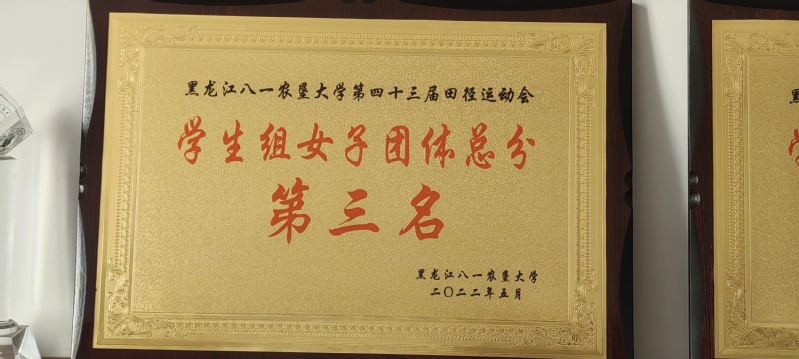 黑龙江八一农垦大学第四十三届田径运动会
学生组女子团体总分
第三名
黑龙江八一农垦大学
二〇二二年五月